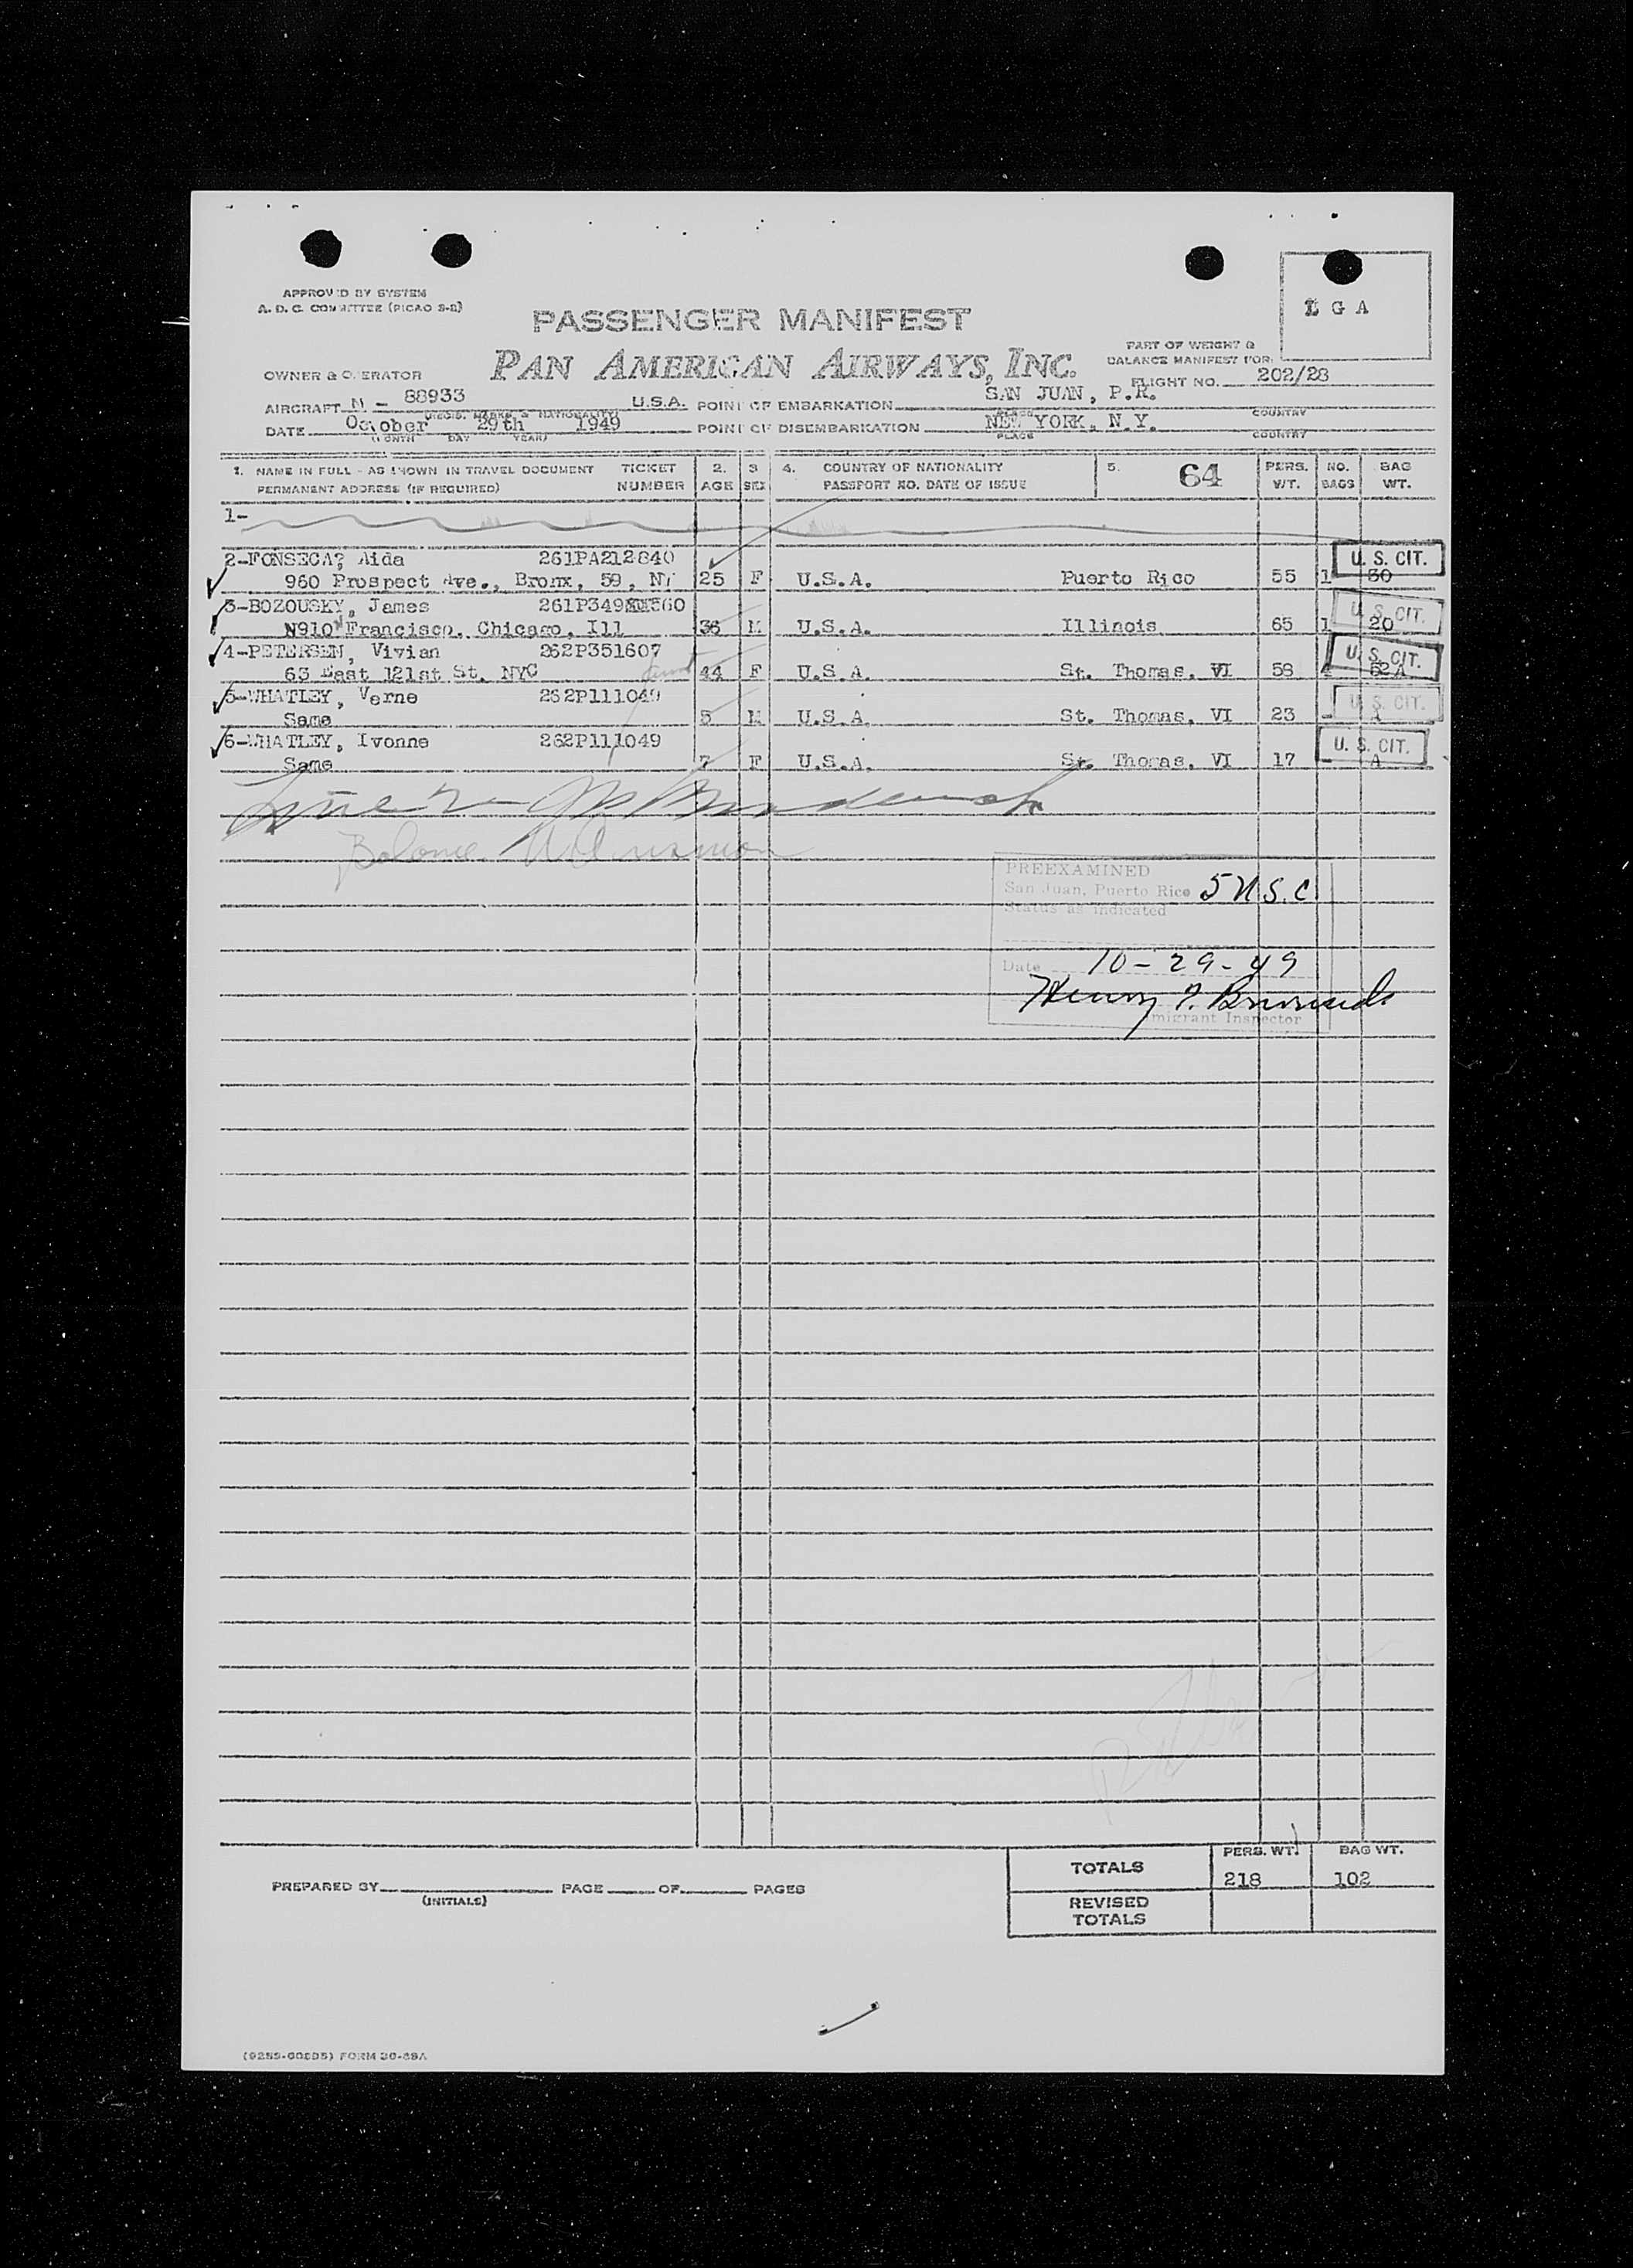 APPROVED BY SYSTEM
A. D. C. COMMITTEE (PICAO S-2)
PASSENGER MANIFEST
L G A
PAN AMERICAN AIRWAYS, INC.
PART OF WEIGHT &
BALANCE MANIFEST FOR:
OWNER & OPERATOR
FLIGHT NO. 202/28
AIRCRAFT N - 88933 U.S.A. POINT OF EMBARKATION SAN JUAN, P.R.
(REGIS. MARKS & NATIONALITY) PLACE COUNTRY
DATE October 29th 1949 POINT OF DISEMBARKATION NEW YORK, N.Y.
(MONTH DAY YEAR) PLACE COUNTRY
1. NAME IN FULL - AS SHOWN IN TRAVEL DOCUMENT TICKET 2. 3 4. COUNTRY OF NATIONALITY 5. 64 PERS. NO. BAG
PERMANENT ADDRESS (IF REQUIRED) NUMBER AGE SEX PASSPORT NO. DATE OF ISSUE WT. BAGS WT.
1-
2-FONSECA, Aida 261PA212840 U. S. CIT.
960 Prospect Ave., Bronx, 59, NY 25 F U.S.A. Puerto Rico 55 1 30
3-BOZOUSKY, James U. S. CIT.
N910 Francisco, Chicago, Ill 36 M U.S.A. Illinois 65 1 20
4-PETERSEN, Vivian 262P351607 U. S. CIT.
63 East 121st St. NYC 44 F U.S.A. St. Thomas, VI 58 52
5-WHATLEY, Verne 262P111049 U. S. CIT.
Same 5 M U.S.A. St. Thomas, VI 23 - A
6-WHATLEY, Ivonne 262P111049 U. S. CIT.
Same 7 F U.S.A. St. Thomas, VI 17 - A
Line 2 -
Balance
PREEXAMINED
San Juan, Puerto Rico 5 U.S.C.
Status as indicated
Date 10-29-49
Henry
Immigrant Inspector
TOTALS PERS. WT. BAG WT.
218 102
PREPARED BY PAGE OF PAGES
(INITIALS)
REVISED
TOTALS
FORM 30-69A